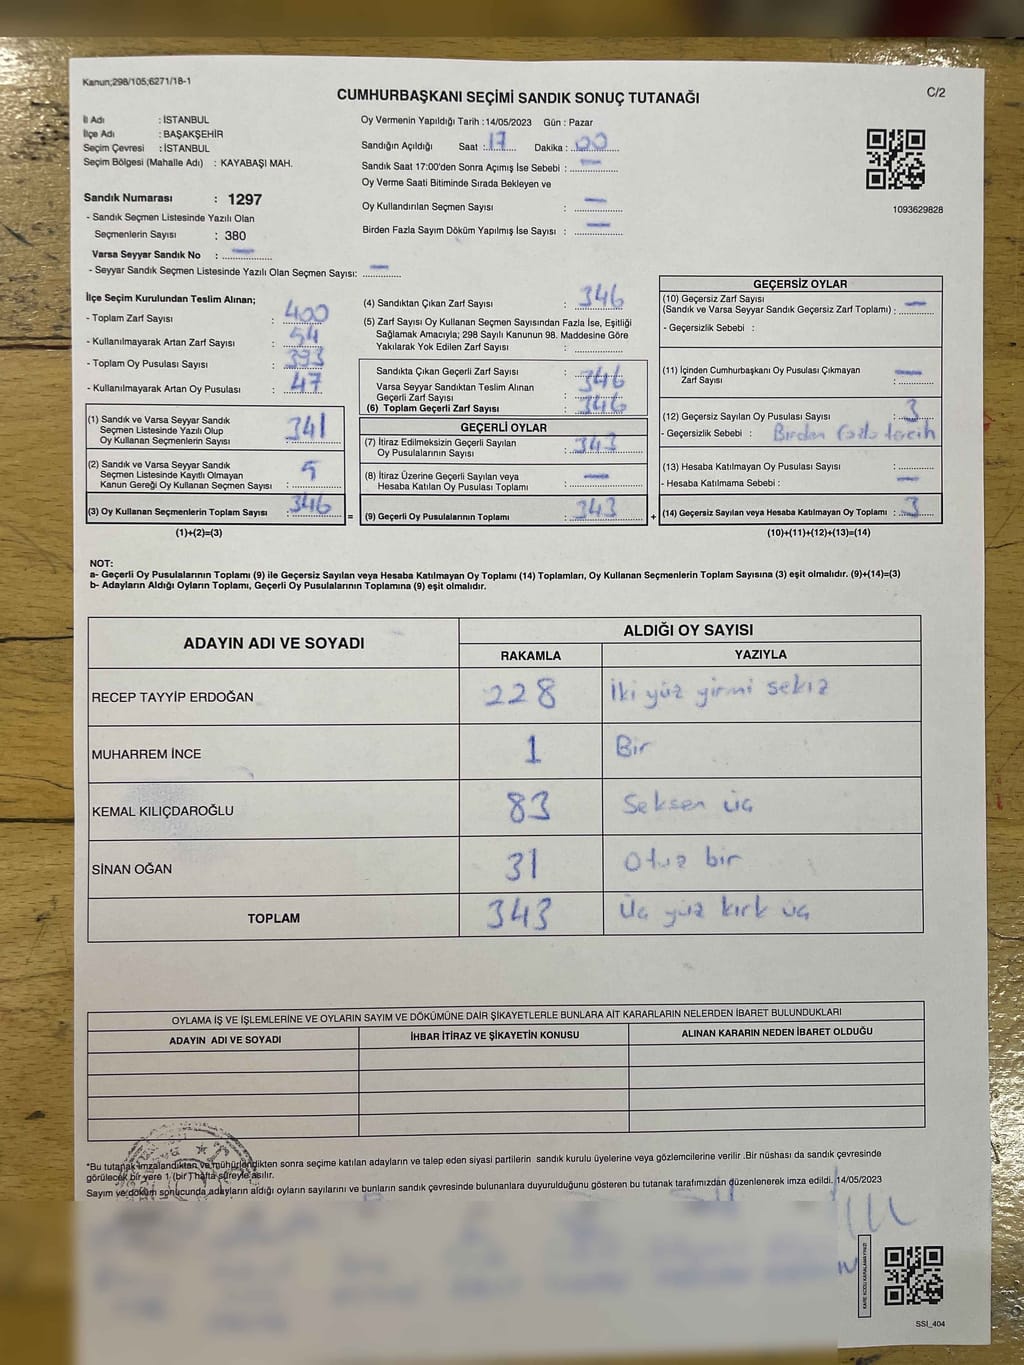 Kanun;298/105;6271/18-1
C/2
CUMHURBAŞKANI SEÇİMİ SANDIK SONUÇ TUTANAĞI
İl Adı : İSTANBUL
İlçe Adı : BAŞAKŞEHİR
Seçim Çevresi : İSTANBUL
Seçim Bölgesi (Mahalle Adı) : KAYABAŞI MAH.
Sandık Numarası : 1297
- Sandık Seçmen Listesinde Yazılı Olan
Seçmenlerin Sayısı : 380
Varsa Seyyar Sandık No : —
- Seyyar Sandık Seçmen Listesinde Yazılı Olan Seçmen Sayısı: —
Oy Vermenin Yapıldığı Tarih :14/05/2023 Gün : Pazar
Sandığın Açıldığı Saat : 17 Dakika : 00
Sandık Saat 17:00'den Sonra Açımış İse Sebebi : —
Oy Verme Saati Bitiminde Sırada Bekleyen ve
Oy Kullandırılan Seçmen Sayısı : —
Birden Fazla Sayım Döküm Yapılmış İse Sayısı : —
1093629828
İlçe Seçim Kurulundan Teslim Alınan;
- Toplam Zarf Sayısı : 400
- Kullanılmayarak Artan Zarf Sayısı : 54
- Toplam Oy Pusulası Sayısı : 393
- Kullanılmayarak Artan Oy Pusulası : 47
(1) Sandık ve Varsa Seyyar Sandık
Seçmen Listesinde Yazılı Olup
Oy Kullanan Seçmenlerin Sayısı : 341
(2) Sandık ve Varsa Seyyar Sandık
Seçmen Listesinde Kayıtlı Olmayan
Kanun Gereği Oy Kullanan Seçmen Sayısı : 5
(3) Oy Kullanan Seçmenlerin Toplam Sayısı : 346
(1)+(2)=(3)
(4) Sandıktan Çıkan Zarf Sayısı : 346
(5) Zarf Sayısı Oy Kullanan Seçmen Sayısından Fazla İse, Eşitliği
Sağlamak Amacıyla; 298 Sayılı Kanunun 98. Maddesine Göre
Yakılarak Yok Edilen Zarf Sayısı :
Sandıkta Çıkan Geçerli Zarf Sayısı : 346
Varsa Seyyar Sandıktan Teslim Alınan
Geçerli Zarf Sayısı :
(6) Toplam Geçerli Zarf Sayısı : 346
=
GEÇERLİ OYLAR
(7) İtiraz Edilmeksizin Geçerli Sayılan
Oy Pusulalarının Sayısı : 343
(8) İtiraz Üzerine Geçerli Sayılan veya
Hesaba Katılan Oy Pusulası Toplamı : —
(9) Geçerli Oy Pusulalarının Toplamı : 343
+
GEÇERSİZ OYLAR
(10) Geçersiz Zarf Sayısı
(Sandık ve Varsa Seyyar Sandık Geçersiz Zarf Toplamı) : —
- Geçersizlik Sebebi :
(11) İçinden Cumhurbaşkanı Oy Pusulası Çıkmayan
Zarf Sayısı : —
(12) Geçersiz Sayılan Oy Pusulası Sayısı : 3
- Geçersizlik Sebebi : Birden fazla tercih
(13) Hesaba Katılmayan Oy Pusulası Sayısı :
- Hesaba Katılmama Sebebi : —
(14) Geçersiz Sayılan veya Hesaba Katılmayan Oy Toplamı : 3
(10)+(11)+(12)+(13)=(14)
NOT:
a- Geçerli Oy Pusulalarının Toplamı (9) ile Geçersiz Sayılan veya Hesaba Katılmayan Oy Toplamı (14) Toplamları, Oy Kullanan Seçmenlerin Toplam Sayısına (3) eşit olmalıdır. (9)+(14)=(3)
b- Adayların Aldığı Oyların Toplamı, Geçerli Oy Pusulalarının Toplamına (9) eşit olmalıdır.
ADAYIN ADI VE SOYADI ALDIĞI OY SAYISI
RAKAMLA YAZIYLA
RECEP TAYYİP ERDOĞAN 228 İki yüz yirmi sekiz
MUHARREM İNCE 1 Bir
KEMAL KILIÇDAROĞLU 83 Seksen üç
SİNAN OĞAN 31 Otuz bir
TOPLAM 343 Üç yüz kırk üç
OYLAMA İŞ VE İŞLEMLERİNE VE OYLARIN SAYIM VE DÖKÜMÜNE DAİR ŞİKAYETLERLE BUNLARA AİT KARARLARIN NELERDEN İBARET BULUNDUKLARI
ADAYIN ADI VE SOYADI İHBAR İTİRAZ VE ŞİKAYETİN KONUSU ALINAN KARARIN NEDEN İBARET OLDUĞU
*Bu tutanak imzalandıktan ve mühürlendikten sonra seçime katılan adayların ve talep eden siyasi partilerin sandık kurulu üyelerine veya gözlemcilerine verilir .Bir nüshası da sandık çevresinde
görülecek bir yere 1 (bir) hafta süreyle asılır.
Sayım ve döküm sonucunda adayların aldığı oyların sayılarını ve bunların sandık çevresinde bulunanlara duyurulduğunu gösteren bu tutanak tarafımızdan düzenlenerek imza edildi. 14/05/2023
SSI_404